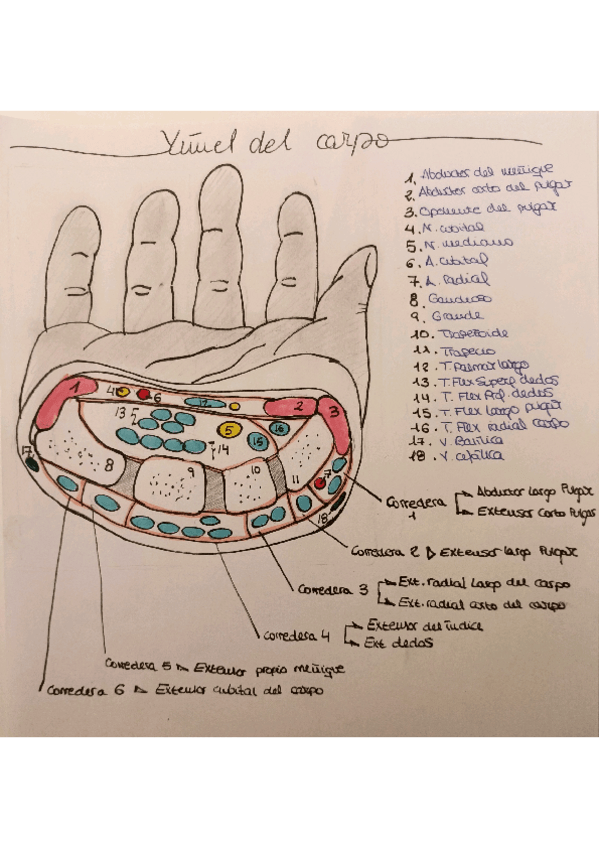 Túnel del carpo
1. Abductor del meñique
2. Abductor corto del pulgar
3. Oponente del pulgar
4. N. cubital
5. N. mediano
6. A. cubital
7. A. Radial
8 Ganchoso
9. Grande
10. Trapezoide
11. Trapecio
12. T. palmar largo
13. T. Flex Superf dedos
14. T. Flex Prof. dedos
15. T. Flex largo pulgar
16. T. Flex radial carpo
17. V. Basílica
18. V. cefálica
1 4 6 12 2 3
13 5 15 16
14
17 8 9 10 11 7
18
Corredera 1 Abductor largo Pulgar
Extensor corto Pulgar
Corredera 2 Extensor largo Pulgar
Corredera 3 Ext. radial largo del carpo
Ext. radial corto del carpo
Corredera 4 Extensor del índice
Ext dedos
Corredera 5 Extensor propio meñique
Corredera 6 Extensor cubital del carpo